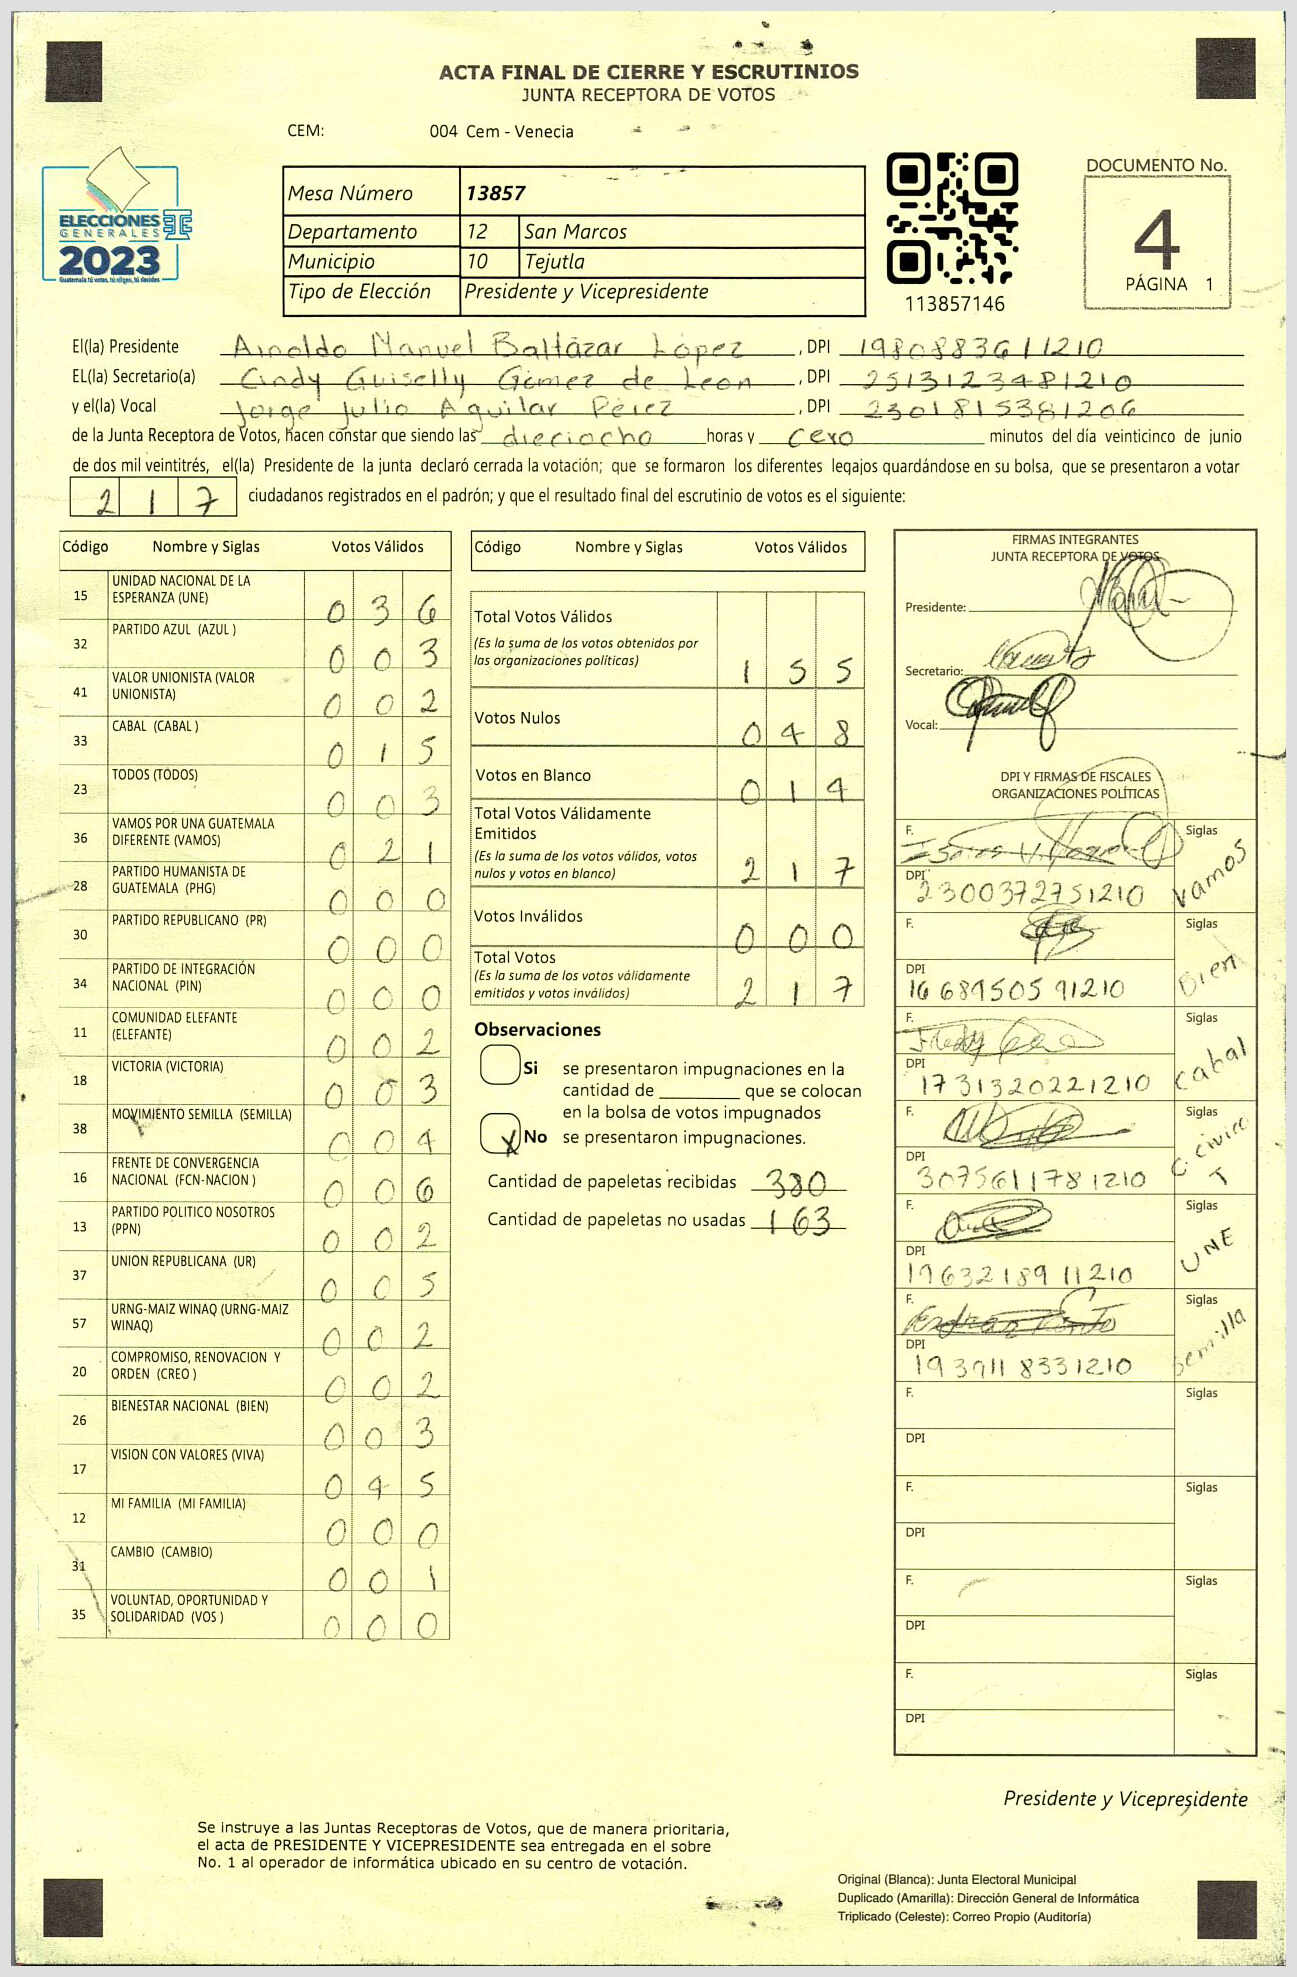 ACTA FINAL DE CIERRE Y ESCRUTINIOS
JUNTA RECEPTORA DE VOTOS
CEM: 004 Cem - Venecia
ELECCIONES
GENERALES
2023
Guatemala tú votas, tú eliges, tú decides
Mesa Número 13857
Departamento 12 San Marcos
Municipio 10 Tejutla
Tipo de Elección Presidente y Vicepresidente
113857146
DOCUMENTO No.
4
PÁGINA 1
El(la) Presidente Arnoldo Manuel Baltázar López, DPI 1980883611210
EL(la) Secretario(a) Cindy Guiselly Gómez de Leon, DPI 2513123481210
y el(la) Vocal Jorge Julio Aguilar Pérez, DPI 2301815381206
de la Junta Receptora de Votos, hacen constar que siendo las dieciocho horas y cero minutos del día veinticinco de junio
de dos mil veintitrés, el(la) Presidente de la junta declaró cerrada la votación; que se formaron los diferentes legajos guardándose en su bolsa, que se presentaron a votar
2 1 7 ciudadanos registrados en el padrón; y que el resultado final del escrutinio de votos es el siguiente:
Código Nombre y Siglas Votos Válidos
15 UNIDAD NACIONAL DE LA
ESPERANZA (UNE) 0 3 6
32 PARTIDO AZUL (AZUL ) 0 0 3
41 VALOR UNIONISTA (VALOR
UNIONISTA) 0 0 2
33 CABAL (CABAL ) 0 1 5
23 TODOS (TODOS) 0 0 3
36 VAMOS POR UNA GUATEMALA
DIFERENTE (VAMOS) 0 2 1
28 PARTIDO HUMANISTA DE
GUATEMALA (PHG) 0 0 0
30 PARTIDO REPUBLICANO (PR) 0 0 0
34 PARTIDO DE INTEGRACIÓN
NACIONAL (PIN) 0 0 0
11 COMUNIDAD ELEFANTE
(ELEFANTE) 0 0 2
18 VICTORIA (VICTORIA) 0 0 3
38 MOVIMIENTO SEMILLA (SEMILLA) 0 0 4
16 FRENTE DE CONVERGENCIA
NACIONAL (FCN-NACION ) 0 0 6
13 PARTIDO POLITICO NOSOTROS
(PPN) 0 0 2
37 UNION REPUBLICANA (UR) 0 0 5
57 URNG-MAIZ WINAQ (URNG-MAIZ
WINAQ) 0 0 2
20 COMPROMISO, RENOVACION Y
ORDEN (CREO ) 0 0 2
26 BIENESTAR NACIONAL (BIEN) 0 0 3
17 VISION CON VALORES (VIVA) 0 4 5
12 MI FAMILIA (MI FAMILIA) 0 0 0
31 CAMBIO (CAMBIO) 0 0 1
35 VOLUNTAD, OPORTUNIDAD Y
SOLIDARIDAD (VOS ) 0 0 0
Código Nombre y Siglas Votos Válidos
Total Votos Válidos
(Es la suma de los votos obtenidos por
las organizaciones políticas) 1 5 5
Votos Nulos 0 4 8
Votos en Blanco 0 1 4
Total Votos Válidamente
Emitidos
(Es la suma de los votos válidos, votos
nulos y votos en blanco) 2 1 7
Votos Inválidos 0 0 0
Total Votos
(Es la suma de los votos válidamente
emitidos y votos inválidos) 2 1 7
Observaciones
Si se presentaron impugnaciones en la
cantidad de ________ que se colocan
en la bolsa de votos impugnados
X No se presentaron impugnaciones.
Cantidad de papeletas recibidas 380
Cantidad de papeletas no usadas 163
FIRMAS INTEGRANTES
JUNTA RECEPTORA DE VOTOS
Presidente:
Secretario:
Vocal:
DPI Y FIRMAS DE FISCALES
ORGANIZACIONES POLÍTICAS
F. Siglas
DPI 2300372751210 Vamos
F. Siglas
DPI 16 68950591210 Bien
F. Siglas
DPI 1731320221210 Cabal
F. Siglas
DPI 3075611781210 C. Civico
T
F. Siglas
DPI 1963218911210 UNE
F. Siglas
DPI 1939118331210 Semilla
F. Siglas
DPI
F. Siglas
DPI
F. Siglas
DPI
F. Siglas
DPI
Presidente y Vicepresidente
Se instruye a las Juntas Receptoras de Votos, que de manera prioritaria,
el acta de PRESIDENTE Y VICEPRESIDENTE sea entregada en el sobre
No. 1 al operador de informática ubicado en su centro de votación.
Original (Blanca): Junta Electoral Municipal
Duplicado (Amarilla): Dirección General de Informática
Triplicado (Celeste): Correo Propio (Auditoría)